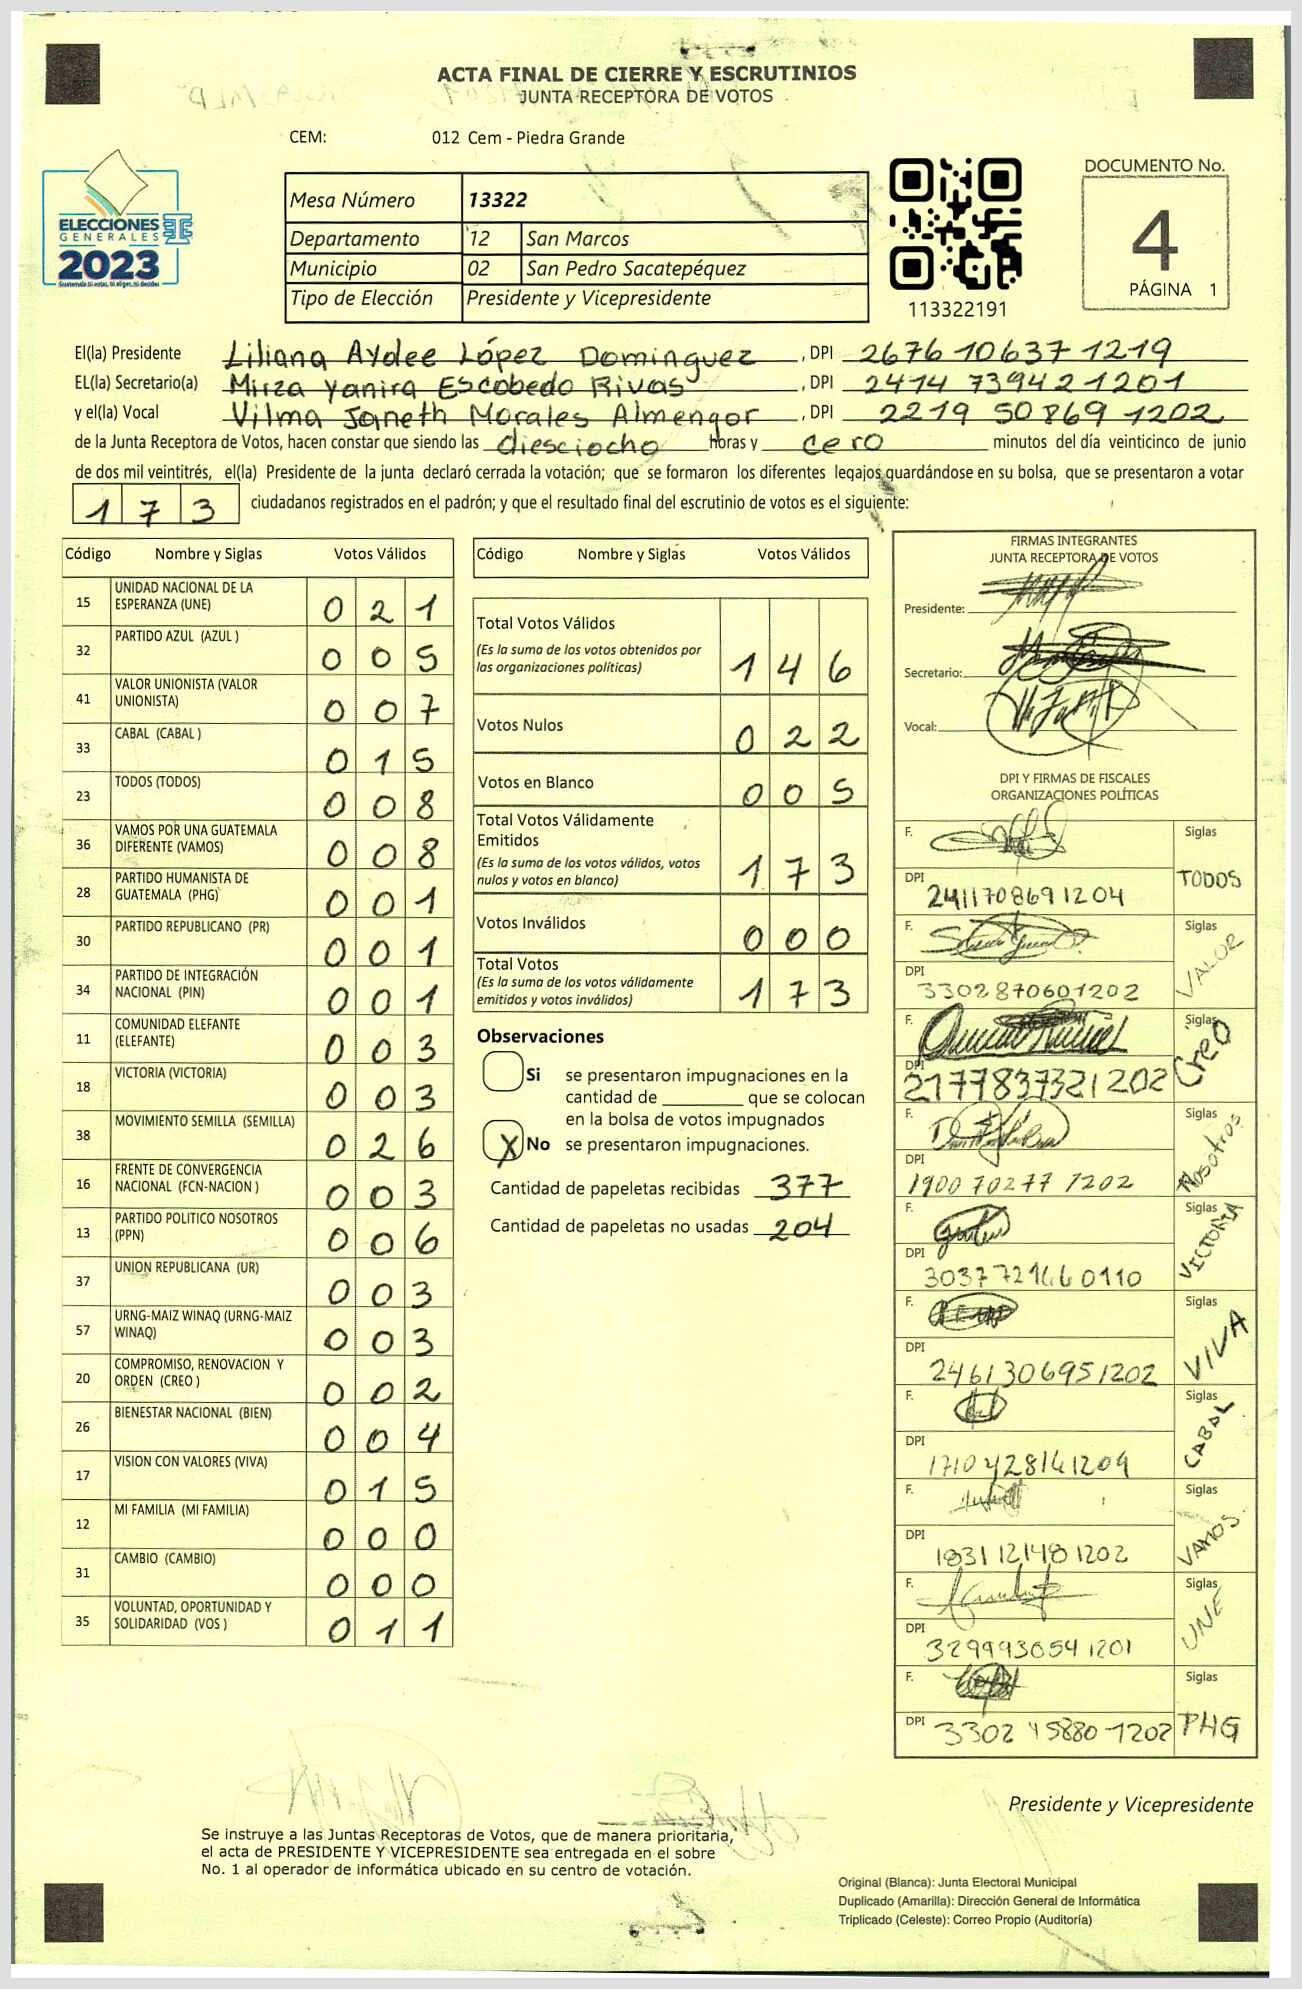 ACTA FINAL DE CIERRE Y ESCRUTINIOS
JUNTA RECEPTORA DE VOTOS
CEM: 012 Cem - Piedra Grande
ELECCIONES
GENERALES
2023
Guatemala tú votas, tú eliges, tú decides
Mesa Número 13322
Departamento 12 San Marcos
Municipio 02 San Pedro Sacatepéquez
Tipo de Elección Presidente y Vicepresidente
113322191
DOCUMENTO No.
4
PÁGINA 1
El(la) Presidente Liliana Aydee López Dominguez , DPI 2676 10637 1219
EL(la) Secretario(a) Mirza Yanira Escobedo Rivas , DPI 2414 73942 1201
y el(la) Vocal Vilma Janeth Morales Almengor , DPI 2219 50869 1202
de la Junta Receptora de Votos, hacen constar que siendo las diesciocho horas y cero minutos del día veinticinco de junio
de dos mil veintitrés, el(la) Presidente de la junta declaró cerrada la votación; que se formaron los diferentes legajos guardándose en su bolsa, que se presentaron a votar
1 7 3 ciudadanos registrados en el padrón; y que el resultado final del escrutinio de votos es el siguiente:
Código Nombre y Siglas Votos Válidos
15 UNIDAD NACIONAL DE LA ESPERANZA (UNE) 0 2 1
32 PARTIDO AZUL (AZUL ) 0 0 5
41 VALOR UNIONISTA (VALOR UNIONISTA) 0 0 7
33 CABAL (CABAL ) 0 1 5
23 TODOS (TODOS) 0 0 8
36 VAMOS POR UNA GUATEMALA DIFERENTE (VAMOS) 0 0 8
28 PARTIDO HUMANISTA DE GUATEMALA (PHG) 0 0 1
30 PARTIDO REPUBLICANO (PR) 0 0 1
34 PARTIDO DE INTEGRACIÓN NACIONAL (PIN) 0 0 1
11 COMUNIDAD ELEFANTE (ELEFANTE) 0 0 3
18 VICTORIA (VICTORIA) 0 0 3
38 MOVIMIENTO SEMILLA (SEMILLA) 0 2 6
16 FRENTE DE CONVERGENCIA NACIONAL (FCN-NACION ) 0 0 3
13 PARTIDO POLITICO NOSOTROS (PPN) 0 0 6
37 UNION REPUBLICANA (UR) 0 0 3
57 URNG-MAIZ WINAQ (URNG-MAIZ WINAQ) 0 0 3
20 COMPROMISO, RENOVACION Y ORDEN (CREO ) 0 0 2
26 BIENESTAR NACIONAL (BIEN) 0 0 4
17 VISION CON VALORES (VIVA) 0 1 5
12 MI FAMILIA (MI FAMILIA) 0 0 0
31 CAMBIO (CAMBIO) 0 0 0
35 VOLUNTAD, OPORTUNIDAD Y SOLIDARIDAD (VOS ) 0 1 1
Código Nombre y Siglas Votos Válidos
Total Votos Válidos
(Es la suma de los votos obtenidos por
las organizaciones políticas) 1 4 6
Votos Nulos 0 2 2
Votos en Blanco 0 0 5
Total Votos Válidamente
Emitidos
(Es la suma de los votos válidos, votos
nulos y votos en blanco) 1 7 3
Votos Inválidos 0 0 0
Total Votos
(Es la suma de los votos válidamente
emitidos y votos inválidos) 1 7 3
Observaciones
Si se presentaron impugnaciones en la
cantidad de ________ que se colocan
en la bolsa de votos impugnados
X No se presentaron impugnaciones.
Cantidad de papeletas recibidas 377
Cantidad de papeletas no usadas 204
FIRMAS INTEGRANTES
JUNTA RECEPTORA DE VOTOS
Presidente:
Secretario:
Vocal:
DPI Y FIRMAS DE FISCALES
ORGANIZACIONES POLÍTICAS
F. Siglas
DPI 2411708691204 TODOS
F. Siglas
DPI 3302870601202 VALOR
F. Siglas
DPI 2177837321202 Creo
F. Siglas
DPI 1900 70277 1202 Nosotros
F. Siglas
DPI 3037721660110 VICTORIA
F. Siglas
DPI 2461306951202 VIVA
F. Siglas
DPI 1710428141209 CABAL
F. Siglas
DPI 1831121481202 VAMOS
F. Siglas
DPI 3299930541201 UNE
F. Siglas
DPI 3302 45880 1202 PHG
Presidente y Vicepresidente
Se instruye a las Juntas Receptoras de Votos, que de manera prioritaria,
el acta de PRESIDENTE Y VICEPRESIDENTE sea entregada en el sobre
No. 1 al operador de informática ubicado en su centro de votación.
Original (Blanca): Junta Electoral Municipal
Duplicado (Amarilla): Dirección General de Informática
Triplicado (Celeste): Correo Propio (Auditoría)